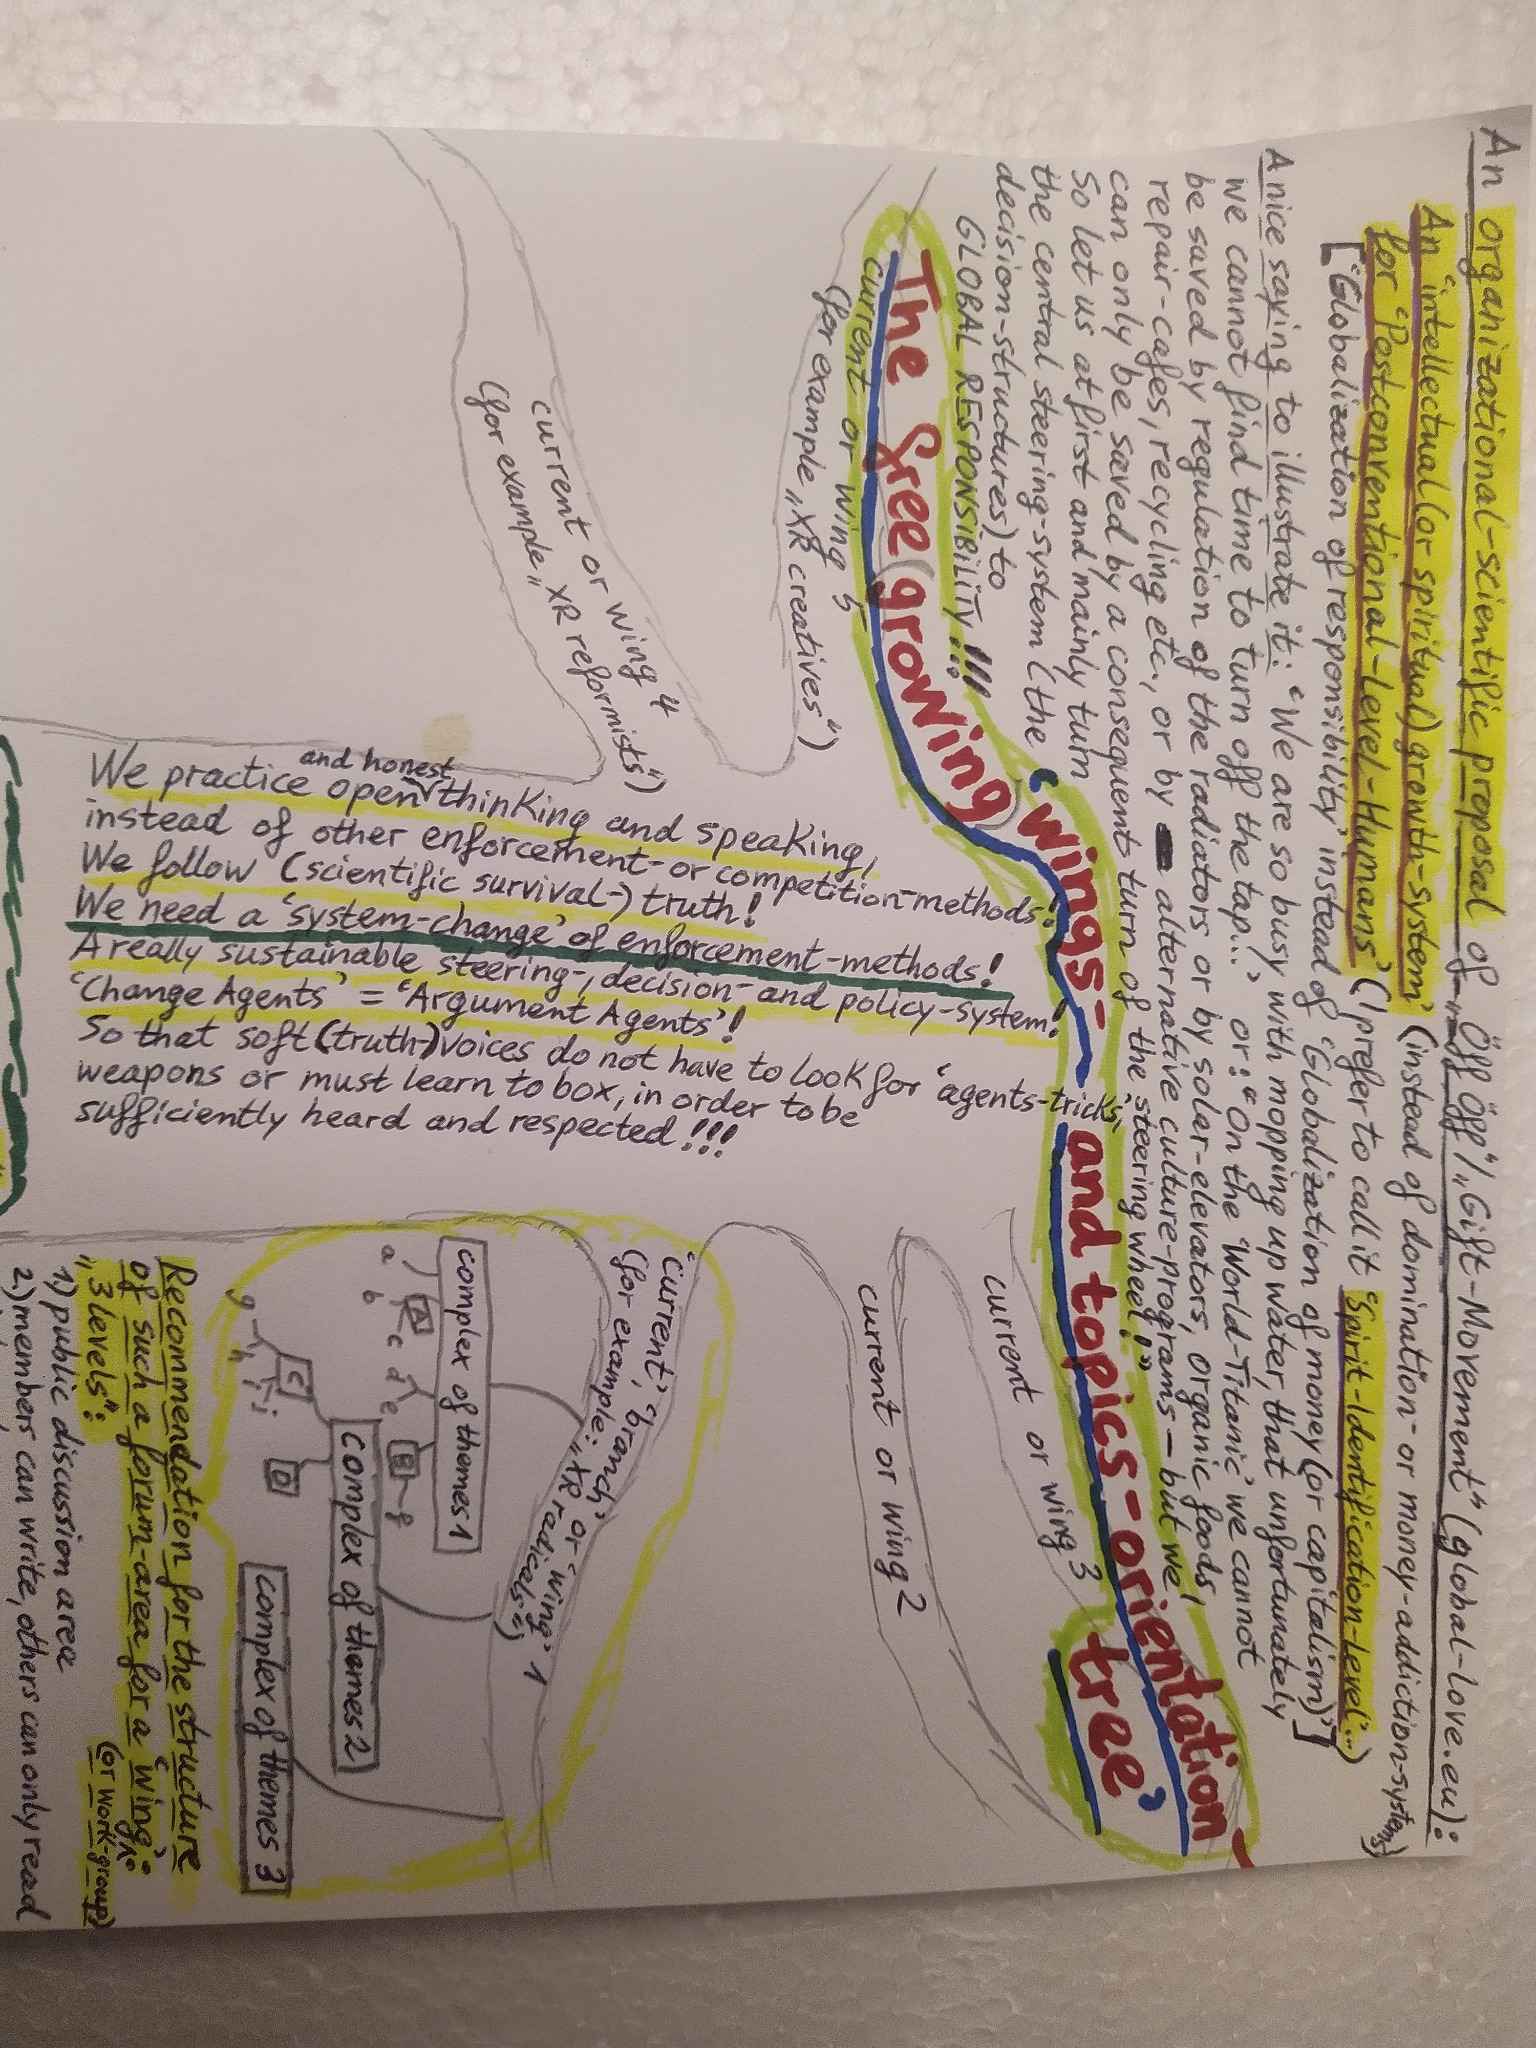 An organizational-scientific proposal of „Öff Öff"/„Gift-Movement" (global-love.eu):
An 'intellectual (or spiritual) growth-system' (instead of domination- or money-addiction-systems)
for 'Postconventional-Level-Humans' (I prefer to call it 'Spirit-Identification-Level'...)
['Globalization of responsibility' instead of 'Globalization of money (or capitalism)']
A nice saying to illustrate it: "We are so busy with mopping up water, that unfortunately
we cannot find time to turn off the tap..." or: "On the 'World-Titanic' we cannot
be saved by regulation of the radiators or by solar-elevators, organic foods,
repair-cafes, recycling etc., or by alternative culture-programs – but we
can only be saved by a consequent turn of the steering wheel!"
So let us at first and mainly turn
the central steering-system (the
decision-structures) to
GLOBAL RESPONSIBILITY!!!
The free (growing) 'wings- and topics-orientation
tree'
current or wing 5
(for example „XR creatives")
current or wing 4
(for example „XR reformists")
current or wing 3
current or wing 2
'current', 'branch' or 'wing' 1
(for example: „XR radicals")
We practice open and honest thinking and speaking,
instead of other enforcement- or competition-methods!
We follow (scientific survival-) truth!
We need a 'system-change' of enforcement-methods!
A really sustainable steering-, decision- and policy-system!
'Change Agents' = 'Argument Agents'!
So that soft (truth-) voices do not have to look for 'agents-tricks',
weapons or must learn to box, in order to be
sufficiently heard and respected!!!
complex of themes 1
A
B
a
b
c
d
e
f
complex of themes 2
C
D
g
h
i
j
complex of themes 3
Recommendation for the structure
of such a forum-area for a 'wing':
(or work-group)
„3 levels":
1.) public discussion area
2.) members can write, others can only read